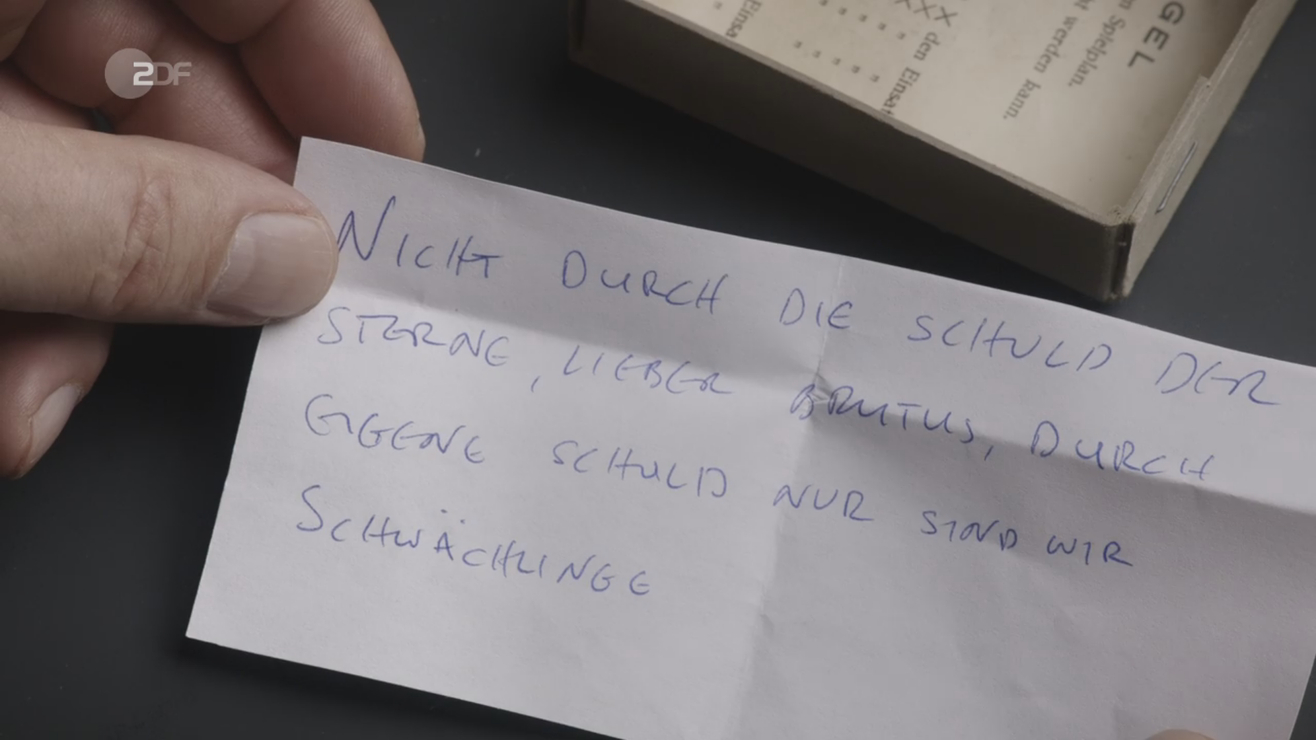 2DF
GEL
n Spielplan.
t werden kann.
XXX den Einsat
Einsa
NICHT DURCH DIE SCHULD DER
STERNE, LIEBER BRUTUS, DURCH
EIGENE SCHULD NUR SIND WIR
SCHWÄCHLINGE